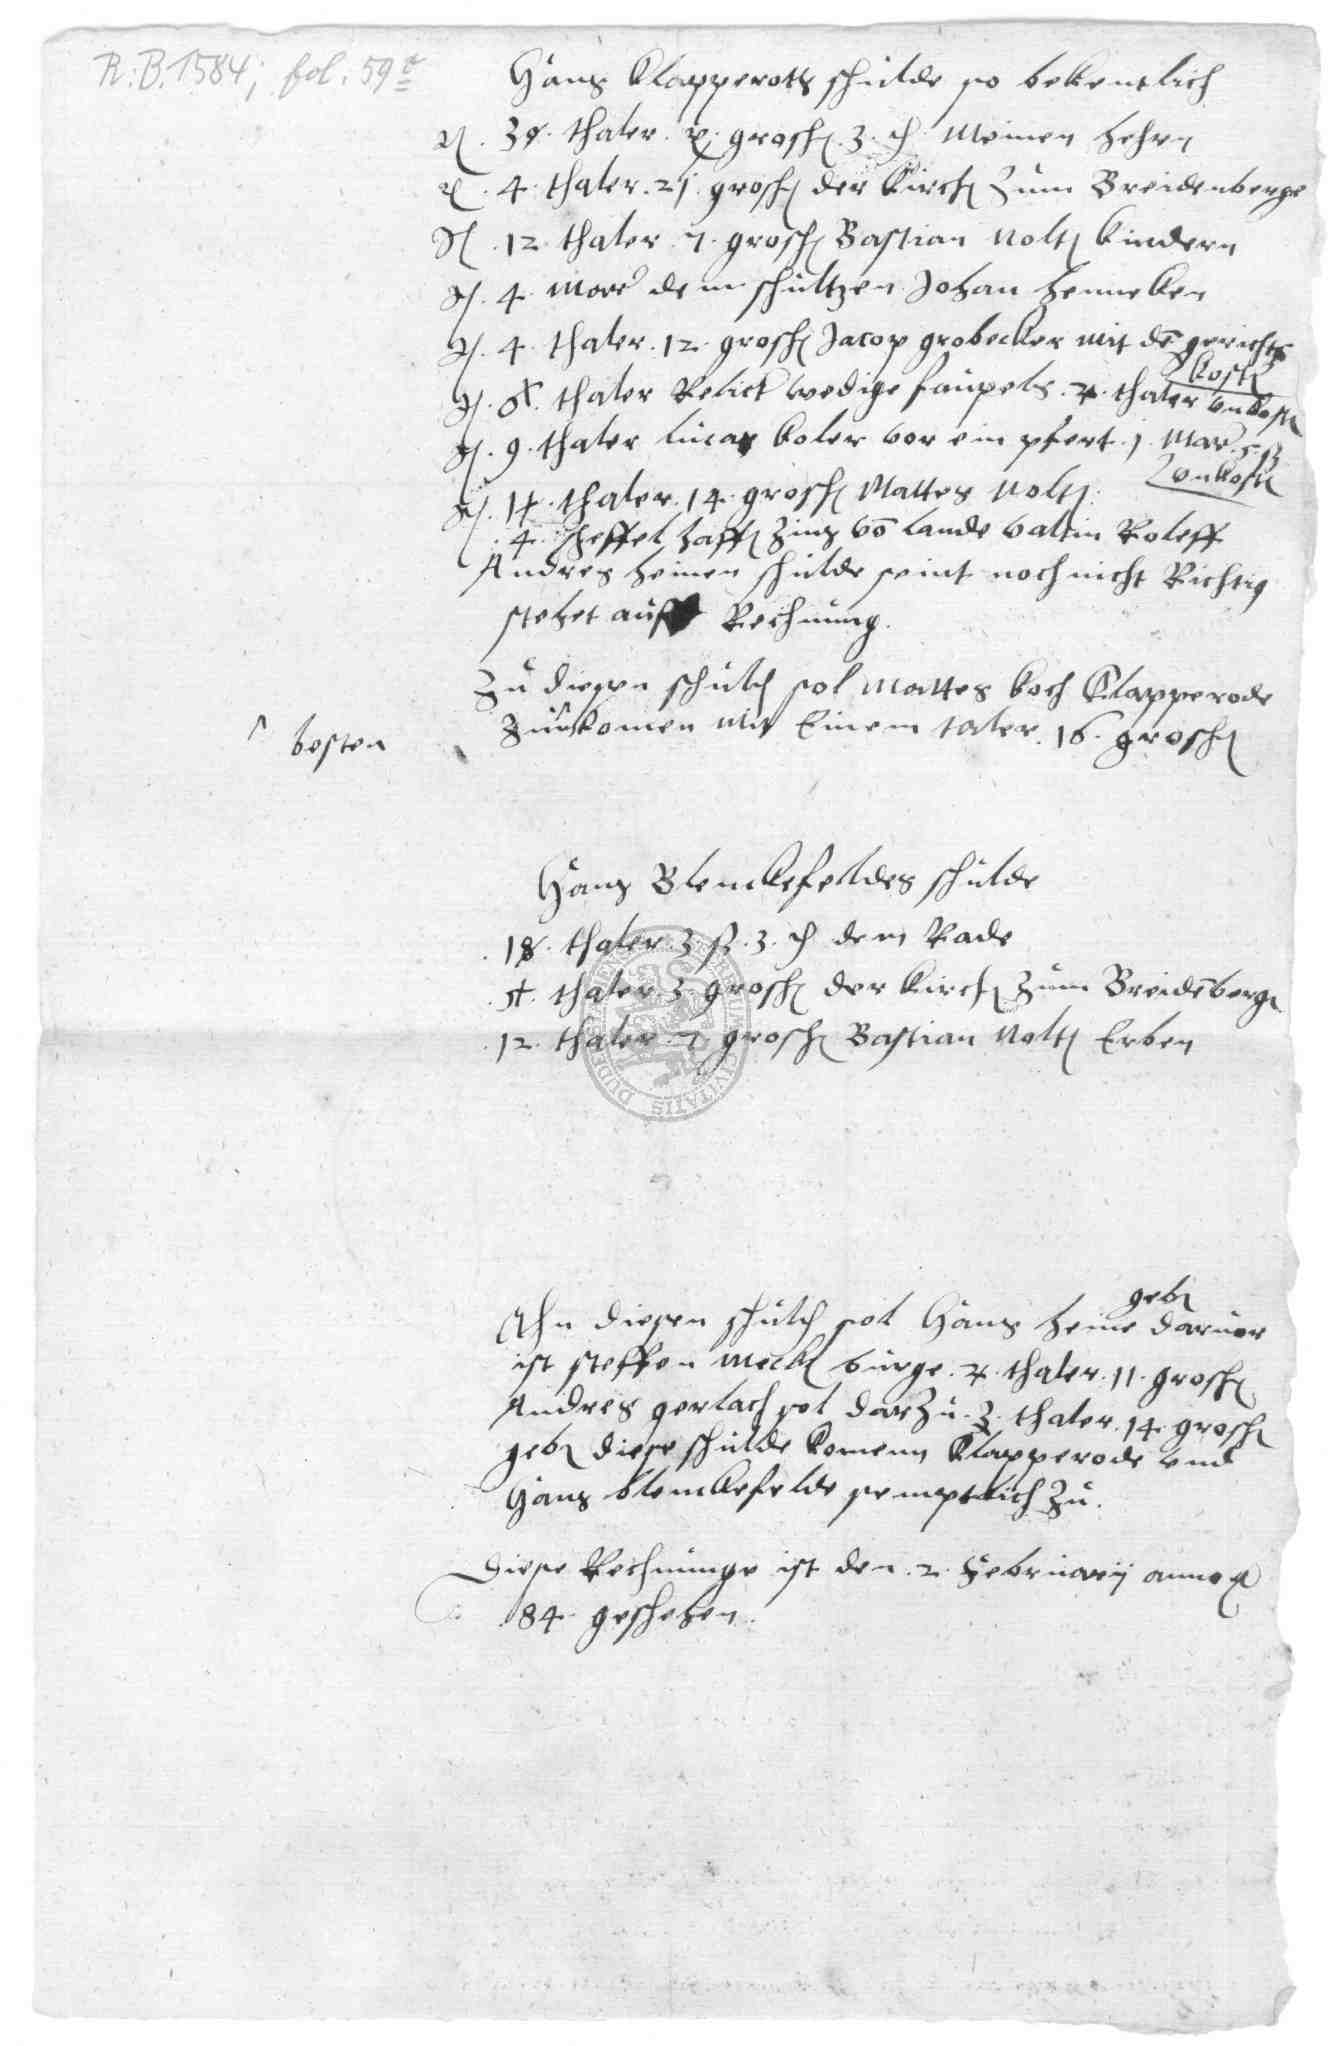 R. B. 1584; fol. 59r
Hans Klapperots schulde so bekentlich
thaler grosch 3 meinen hehrn
4 thaler 21 grosch der Kirch zum Breidenberge
12 thaler 7 grosch Bastian Nolt kindern
4 dem schultzen Johan henneken
4 thaler 12 grosch Jacop grobecker mit de gerichts
kost
thaler Relict wedige faupels thaler unkost
9 thaler lucas koler vor ein pfert 1 Mar
unkost
14 thaler 14 grosch Mattes Nolt
4 scheffel haff zins vo lande valtin Roleff
Andres heinen schulde seint noch nicht Richtig
stehet auff Rechnung.
Zu diesen schuld sol Mattes koch Klapperode
besten
zu komen mit Einem taler 16 grosch
Hans Blenckefeldes schulde
18 thaler 3 ß 3 dem Rade
thaler 3 grosch der kirch zum Breideberg
12 thaler 7 grosch Bastian Nolt Erben
geb
Ahn diesen schuld sol Hans heine daruor
ist steffen Meck burge thaler 11 grosch
Andres gerlach sol darzu 3 thaler 14 grosch
geb diese schulde komenn Klapperode und
Hans blenckefelde semptlich zu.
Diese Rechnunge ist den 2 Februarij anno
84 geschehen.